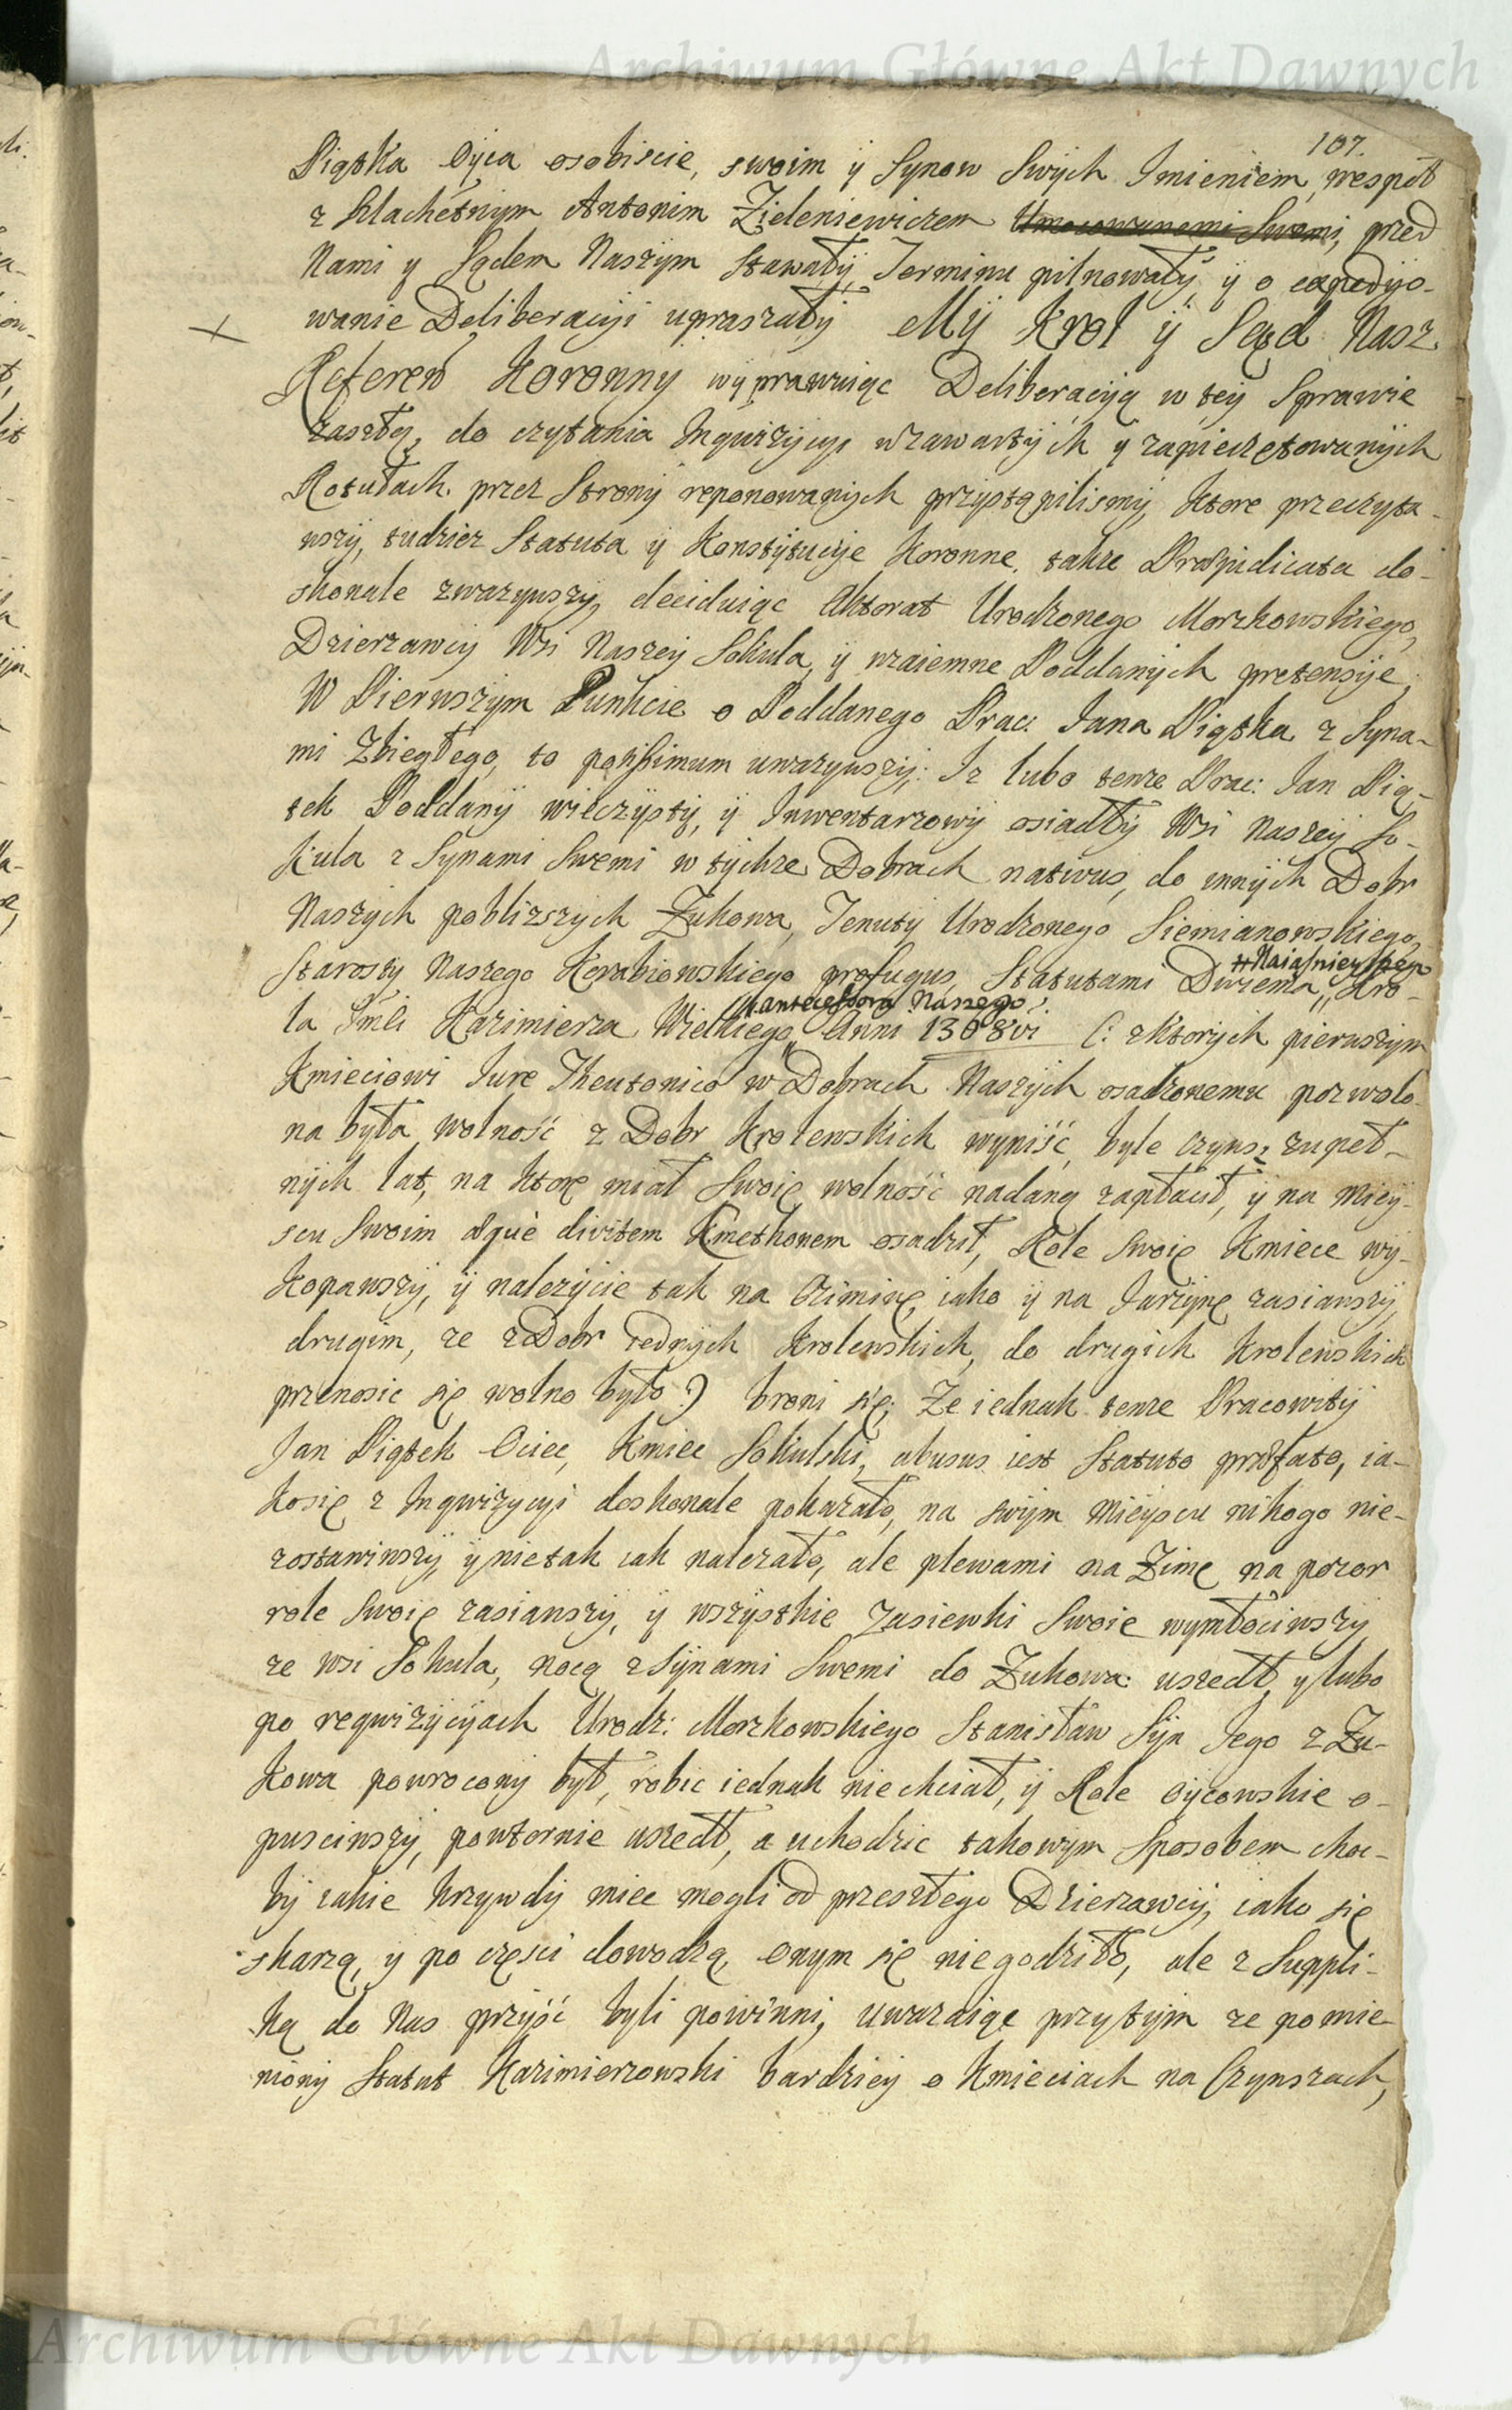 Archiwum Główne Akt Dawnych
107.
Piątka Oyca osobiscie, swoim ÿ Synow Swÿch Jmieniem, wespoł
z Szlachetnÿm Antonim Zieleniewiczem Umocowanemi Swemi, przed
Nami y Sądem Naszÿm stawałÿ, Terminu pilnowałÿ ÿ o expedÿo-
wanie Deliberacÿi upraszałÿ Mÿ Krol ÿ Sąd Nasz
Referen̄ Koronnÿ wÿprawuiąc Deliberacÿą w teÿ Sprawie
zaszłą, do czÿtania Inquizÿcÿi w zawartÿch ÿ zapieczętowanÿch
Rotułach przez Stronÿ reponowanÿch przÿstąpilismÿ, ktore przeczyta-
wszÿ, tudziez Statuta ÿ Konstÿtucÿe Koronne, takze Præjudicata do-
skonale zwazÿwszÿ, deciduiąc Aktorat Urodzonego Morzkowskiego,
Dzierzawcÿ Wsi Naszeÿ Sokula, ÿ wzaiemne Poddanÿch pretensÿe,
W Pierwszÿm Punkcie o Poddanego Prac: Jana Piątka z Syna-
mi Zbiegłego, to potissimum uwazÿwszÿ: Iz lubo tenze Prac: Jan Pią-
tek Poddanÿ wieczÿstÿ, ÿ Jnwentarzowÿ osiadłÿ Wsi Naszeÿ So-
kula z Synami Swemi w tÿchze Dobrach nativus, do innÿch Dobr
Naszÿch poblizszÿch Zukowa, Tenutÿ Urodzonego Siemianowskiego,
Starostÿ Naszego Korabiowskiego profugus, Statutami Dwiema # Naiaśnieyszego Kro-
la Jmći Kazimierza Wielkiego # Antecessora Naszego Anni 1368vi (: z ktorÿch pierwszÿm
Kmieciowi Jure Theutonico w Dobrach Naszÿch osadzonemu pozwolo-
na była wolność z Dobr Krolewskich wÿniść, byle Czÿnsz zupeł-
nÿch lat, na ktore miał Swoię wolność nadaną zapłacił, ÿ na Mieÿ-
scu Swoim æque divitem Kmethonem osadził, Role Swoię Kmiece wÿ-
kopawszÿ, ÿ nalezÿcie tak na Ozimine, iako ÿ na Jarzÿnę zasiawszÿ,
drugim, ze z Dobr iednÿch Krolewskich, do drugich Krolewskich
przenosic się wolno było :) broni się; Ze iednak tenze Pracowitÿ
Jan Piątek Ociec, Kmiec Sokulski, abusus iest Statuto præfato, ia-
ko się z Inquizycÿi doskonale pokazało, na swÿm Mieÿscu nikogo nie-
zostawiwszÿ, ÿ nie tak iak nalezało, ale plewami na Zimę na pozor
role Swoię zasiawszÿ, ÿ wszÿstkie Zasiewki Swoie wymłociwszÿ
ze wsi Sokula, nocą z Sÿnami Swemi do Zukowa uszedł, ÿ lubo
po requizÿcÿach Urodz: Morzkowskiego Stanisław Sÿn Jego z Zu-
kowa powroconÿ był, robic iednak nie chciał, ÿ Role Oÿcowskie o-
pusciwszÿ, powtornie uszedł, a uchodzic takowym Sposobem choc-
bÿ iakie krzywdÿ miec mogli od przeszłego Dzierzawcÿ, iako się
skarzą, ÿ po częsci dowodzą, onym się nie godziło, ale z Suppli-
ką do Nas przÿść byli powinni, uwazaiąc przytÿm ze pomie-
nionÿ Statut Kazimierzowski bardzieÿ o Kmieciach na Czynszach,
Archiwum Główne Akt Dawnych